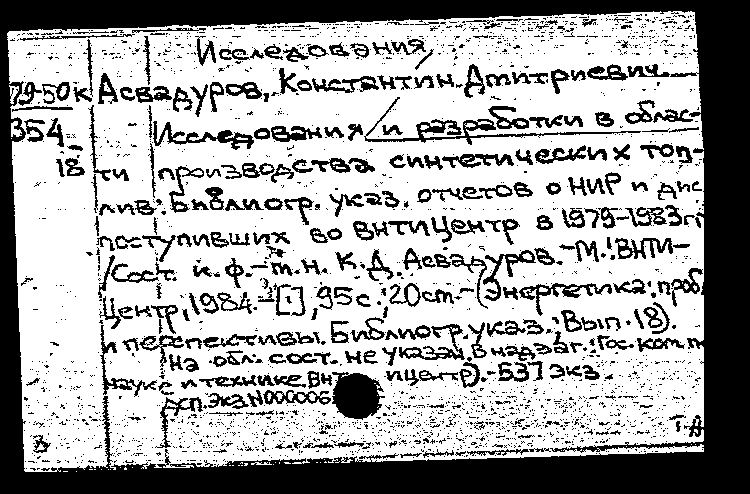 Исследования
79-50к Асвадуров, Константин Дмитриевич.
354 Исследования и разработки в облас-
18 ти производства синтетических топ-
лив: Библиогр. указ. отчетов о НИР и дис
поступивших во ВНТИЦентр в 1979-1983гг
/Сост. к.ф.-т.н. К.Д. Асвадуров. -М.: ВНТИ-
Центр, 1984.-[1], 95с.; 20см.-(Энергетика: проб.
и перспективы. Библиогр. указ.; Вып. 18).
На обл. сост. не указан, в надзаг.: Гос. ком. п
науке и технике. ВНТ ицентр). - 537 экз.
Экз. N000006
Т-А